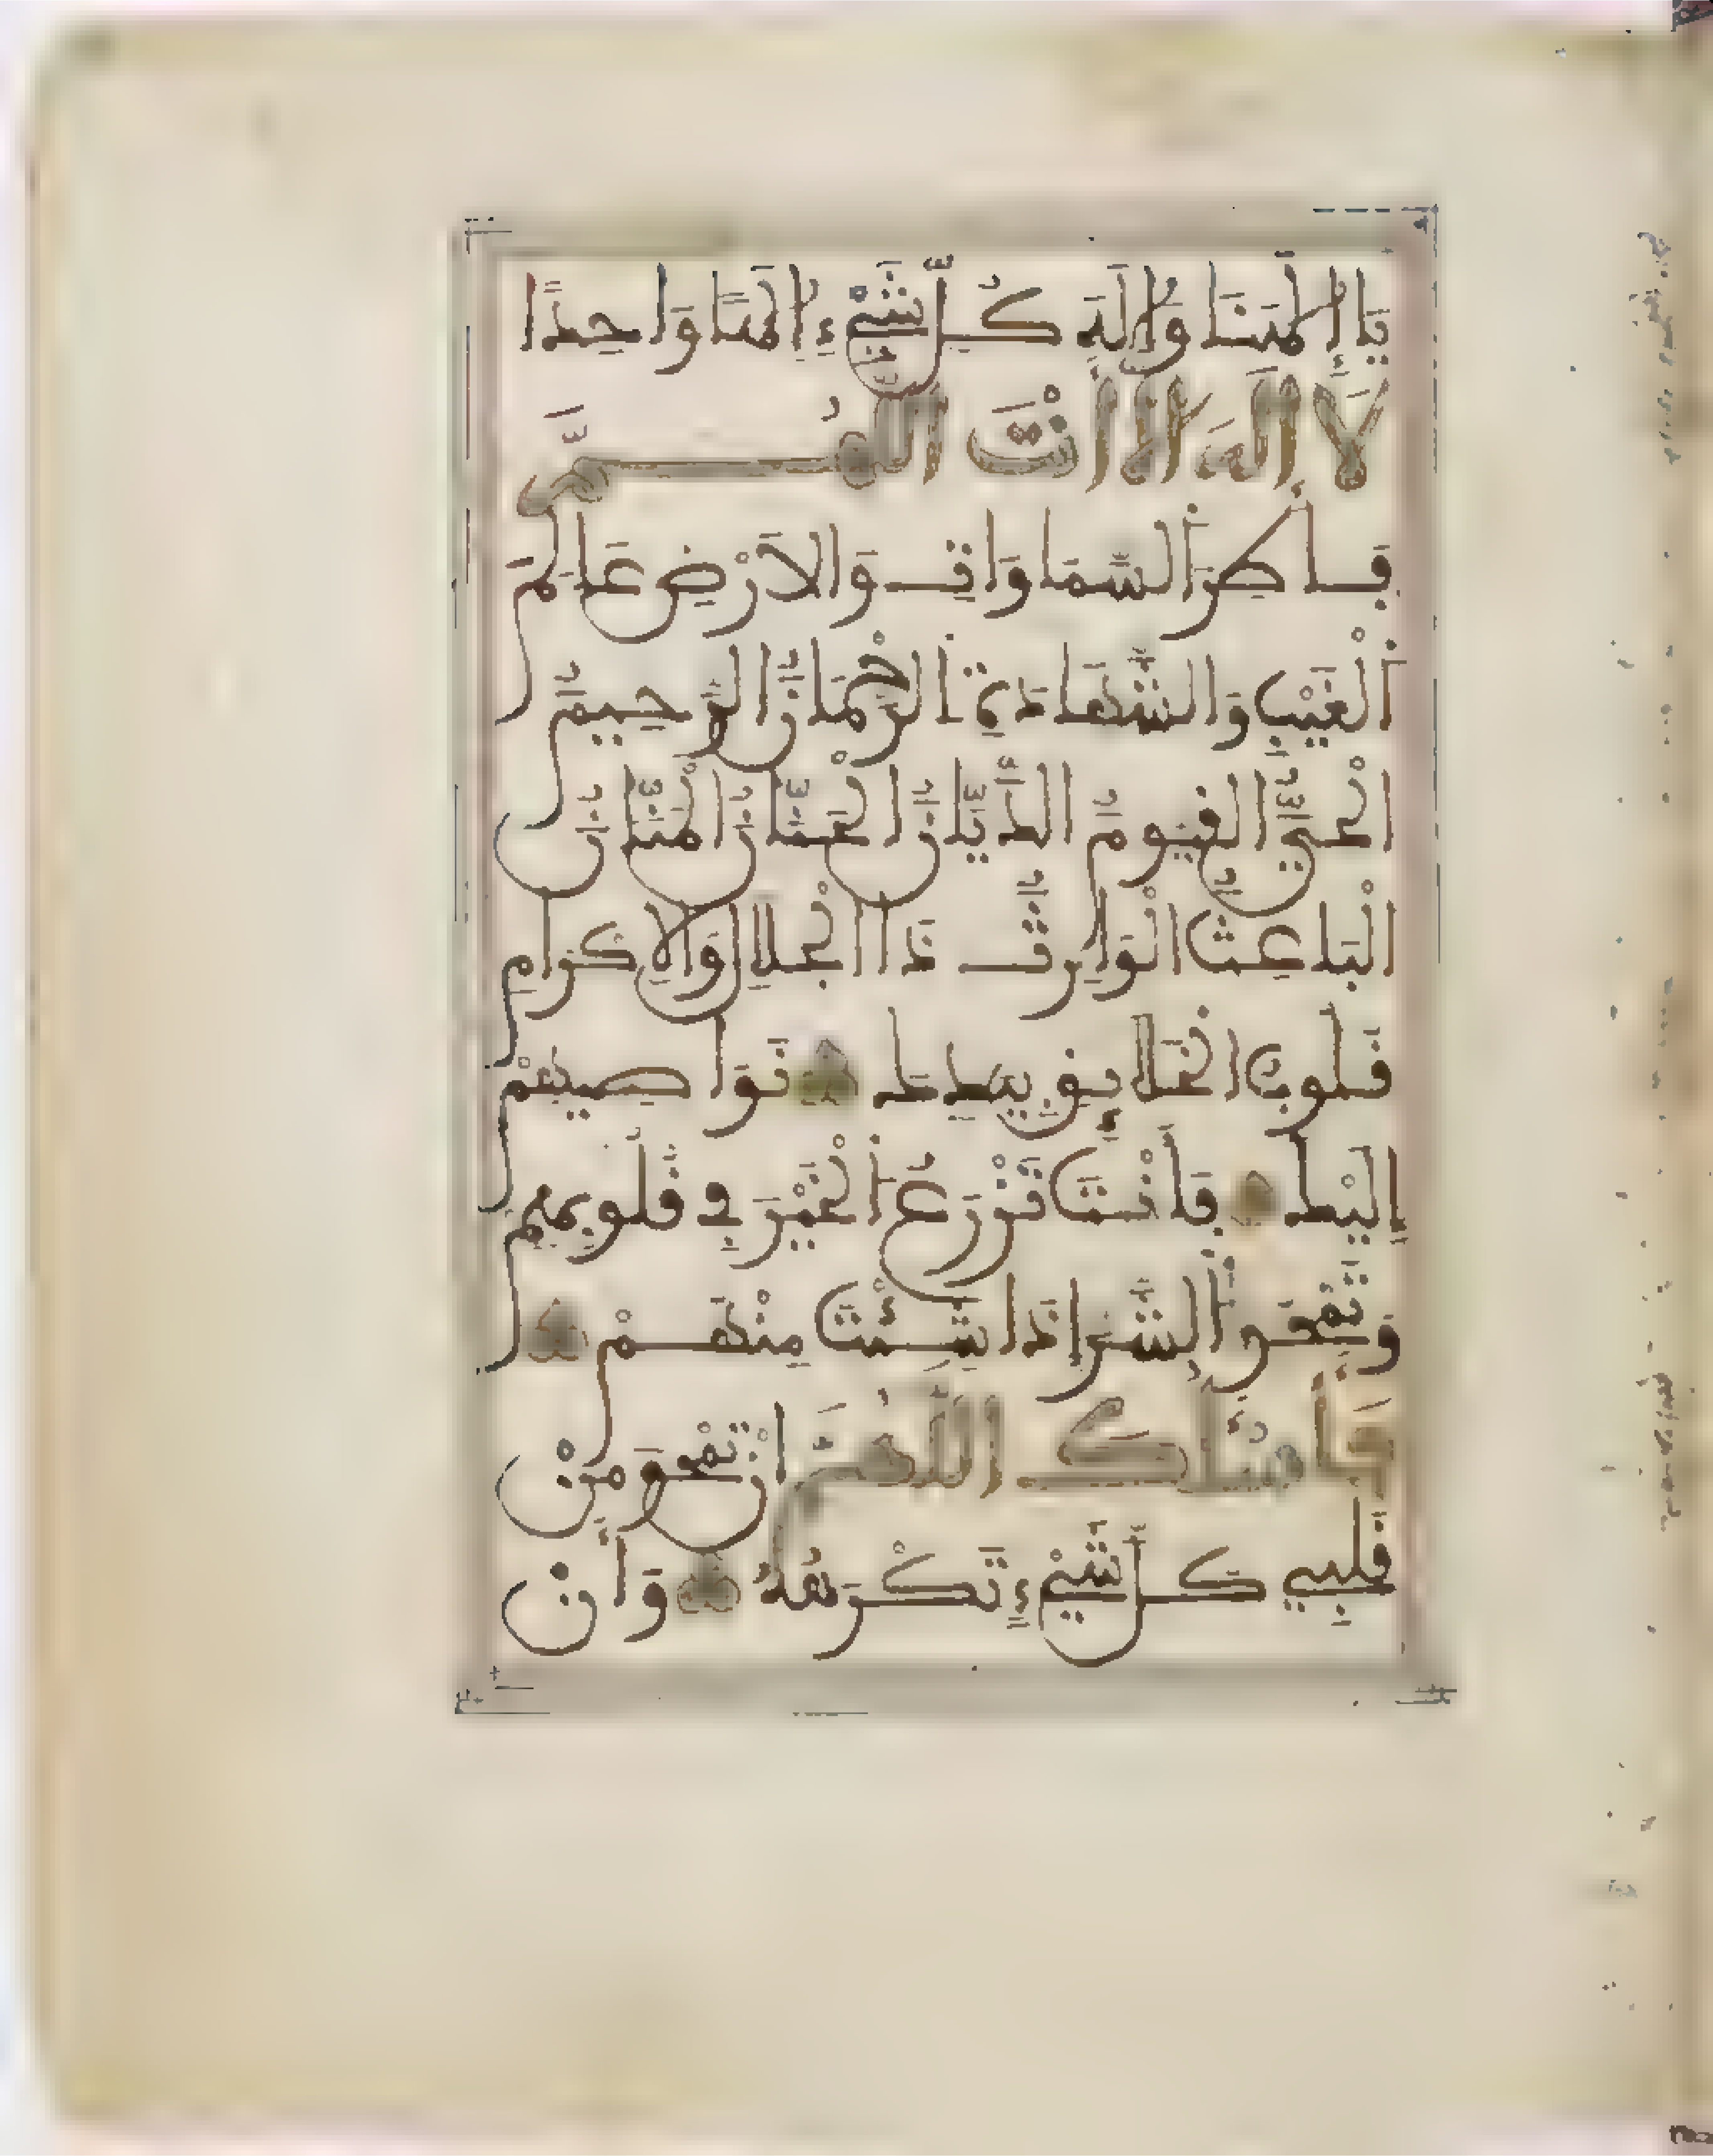 يَا إِلَهَنَا وَإِلَهَ كُلِّ شَيْءٍ إِلَهًا وَاحِدًا
لَا إِلَهَ إِلَّا أَنْتَ اللَّهُمَّ
فَاطِرَ السَّمَاوَاتِ وَالْأَرْضِ عَالِمَ
الْغَيْبِ وَالشَّهَادَةِ الرَّحْمَانُ الرَّحِيمُ
الْحَيُّ الْقَيُّومُ الدَّيَّانُ الْحَنَّانُ الْمَنَّانُ
الْبَاعِثُ الْوَارِثُ ذَا الْجَلَالِ وَالْإِكْرَامِ
قُلُوبُ الْخَلَائِقِ بِيَدِكَ نَوَاصِيهِمْ
إِلَيْكَ فَأَنْتَ تَزْرَعُ الْخَيْرَ فِي قُلُوبِهِمْ
وَتَمْحُو الشَّرَّ إِذَا شِئْتَ مِنْهُمْ
فَأَسْئَلُكَ اللَّهُمَّ أَنْ تَمْحُوَ مِنْ
قَلْبِي كُلَّ شَيْءٍ تَكْرَهُهُ وَأَنْ